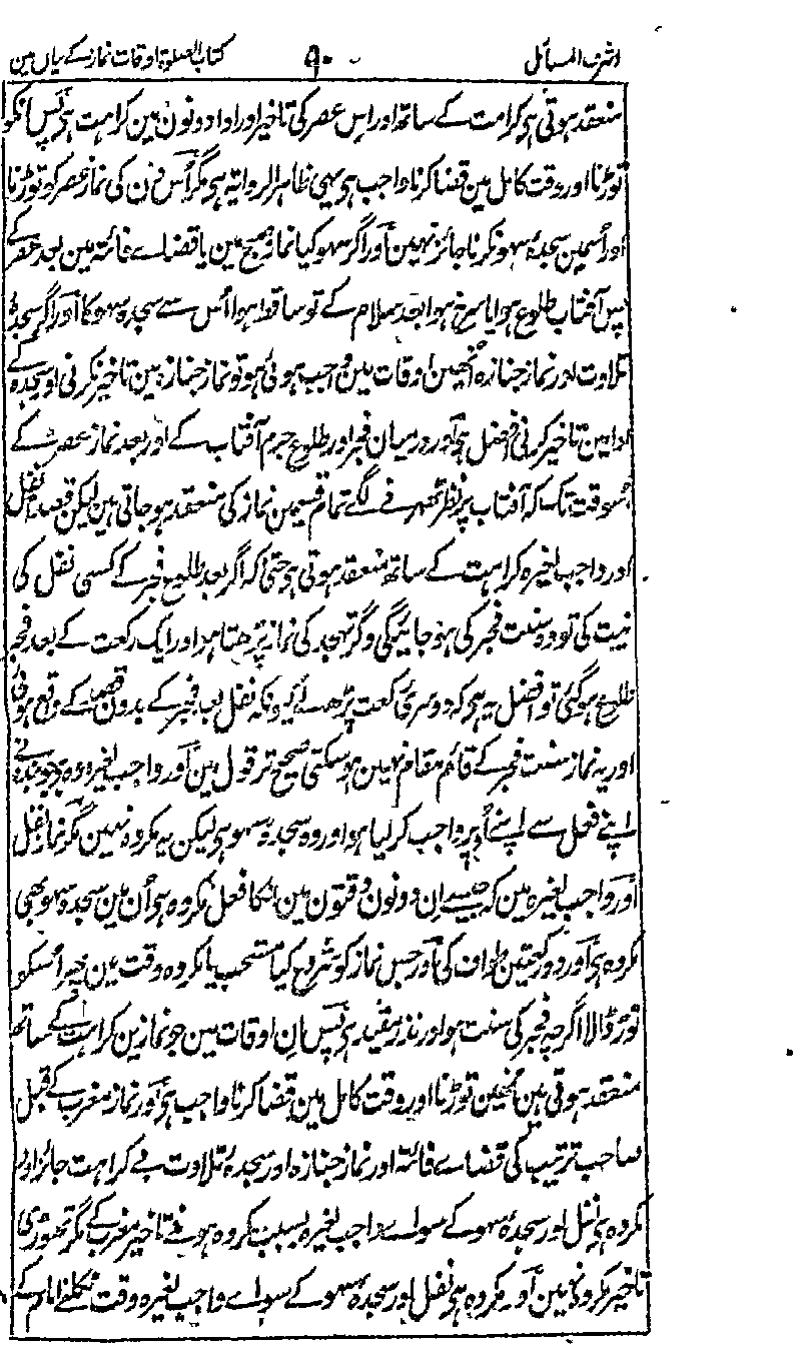 اشرف المسائل ۹۰ کتاب الصلوۃ اوقات نماز کے بیان مین
منعقد ہوتی ہی کراہت کے ساتھ اور اس عصر کی تاخیر اور ادا دونون مین کراہت ہی پس انکو
توڑنا اور وقت کامل مین قضا کرنا واجب ہی یہی ظاہر الروایہ ہی مگر اُس دن کی نماز عصر کو توڑنا
اور اُسمین سجدۂ سہو کرنا جائز نہین اور اگر سہو کیا نماز صبح مین یا قضاے فائتہ مین بعد عصر کے
پس آفتاب طلوع ہوا یا سرخ ہوا بعد سلام کے تو ساقط ہوا اُس سے سجدہ سہو کا اور اگر سجدۂ
تلاوت اور نماز جنازہ انھین اوقات مین واجب ہوئی ہو تو نماز جنازہ مین تاخیر نکرنی اور سجدہ کے
ادا مین تاخیر کرنی افضل ہی اور درمیان فجر اور طلوع جرم آفتاب کے اور بعد نماز عصر کے
اُسوقت تک کہ آفتاب پر نظر ٹھہرنے لگے تمام قسمین نماز کی منعقد ہو جاتی ہین لیکن قصداً نفل
اور واجب لغیرہ کراہت کے ساتھ منعقد ہوتی ہی حتی کہ اگر بعد طلوع فجر کے کسی نفل کی
نیت کی تو وہ سنت فجر کی ہو جائیگی و گر تہجد کی نماز پڑھتا ہو اور ایک رکعت کے بعد فجر
طلوع ہو گئی تو افضل یہ ہی کہ دوسری رکعت پڑھ لے کیونکہ نفل بعد فجر کے بدون قصد کے واقع ہوئی
اور یہ نماز سنت فجر کے قائم مقام نہین ہو سکتی صحیح تر قول مین اور واجب لغیرہ وہ ہی جو بندہ نے
اپنے فعل سے اپنے اُوپر واجب کر لیا ہو اور وہ سجدہ سہو ہی لیکن یہ مکروہ نہین مگر نماز نفل
اور واجب لغیرہ مین کہ جیسے ان دونون وقتون مین انکا فعل مکروہ ہی اُن مین سجدہ سہو بھی
مکروہ ہی اور دو رکعتین طواف کی اور جس نماز کو شروع کیا مستحب یا مکروہ وقت مین پھر اُسکو
توڑ ڈالا اگرچہ فجر کی سنت ہو اور نذر مقید ہی پس ان اوقات مین جو نمازین کراہت کے ساتھ
منعقد ہوتی ہین انھین توڑنا اور وقت کامل مین قضا کرنا واجب ہی اور نماز مغرب کے قبل
صاحب ترتیب کی قضاے فائتہ اور نماز جنازہ اور سجدۂ تلاوت بے کراہت جائز اور
مکروہ ہی نفل اور سجدۂ سہو کے سواے واجب لغیرہ بسبب مکروہ ہونے تاخیر مغرب کے مگر تھوڑی
تاخیر مکروہ نہین اور مکروہ ہی نفل اور سجدہ سہو کے سواے واجب لغیرہ وقت نکلنے امام کے